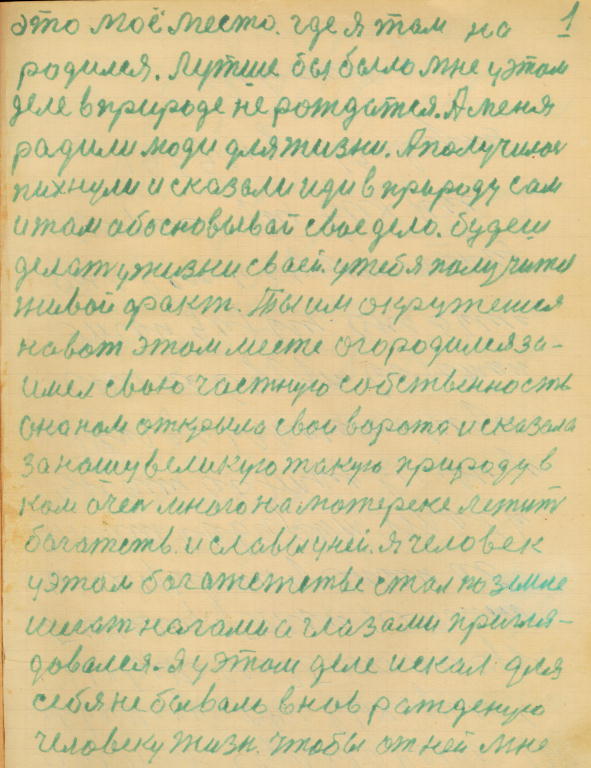 это моё место. где я там на 1
родился. Лутше бы было мне у этом
деле в природе не рождатся. А меня
радили люди для жизни. А получилось
пихнули и сказали иди в природу сам
и там обосновывай свое дело. будеш
делат у жизни своей. у тебя получится
живой факт. Ты им окружешся
на вот этом месте огородился за-
имел свою частную собственность
она нам открыла свои ворота и сказала
за нашу великую такую природу в
ком очен много на матереке лежит
богатств. и славы у ней. я человек
у этом багатстве стал по земле
шагат нагами а глазами пригля-
довался. Я у этом деле искал для
себя небывало внов ражденую
человеку жизн. чтобы от ней мне